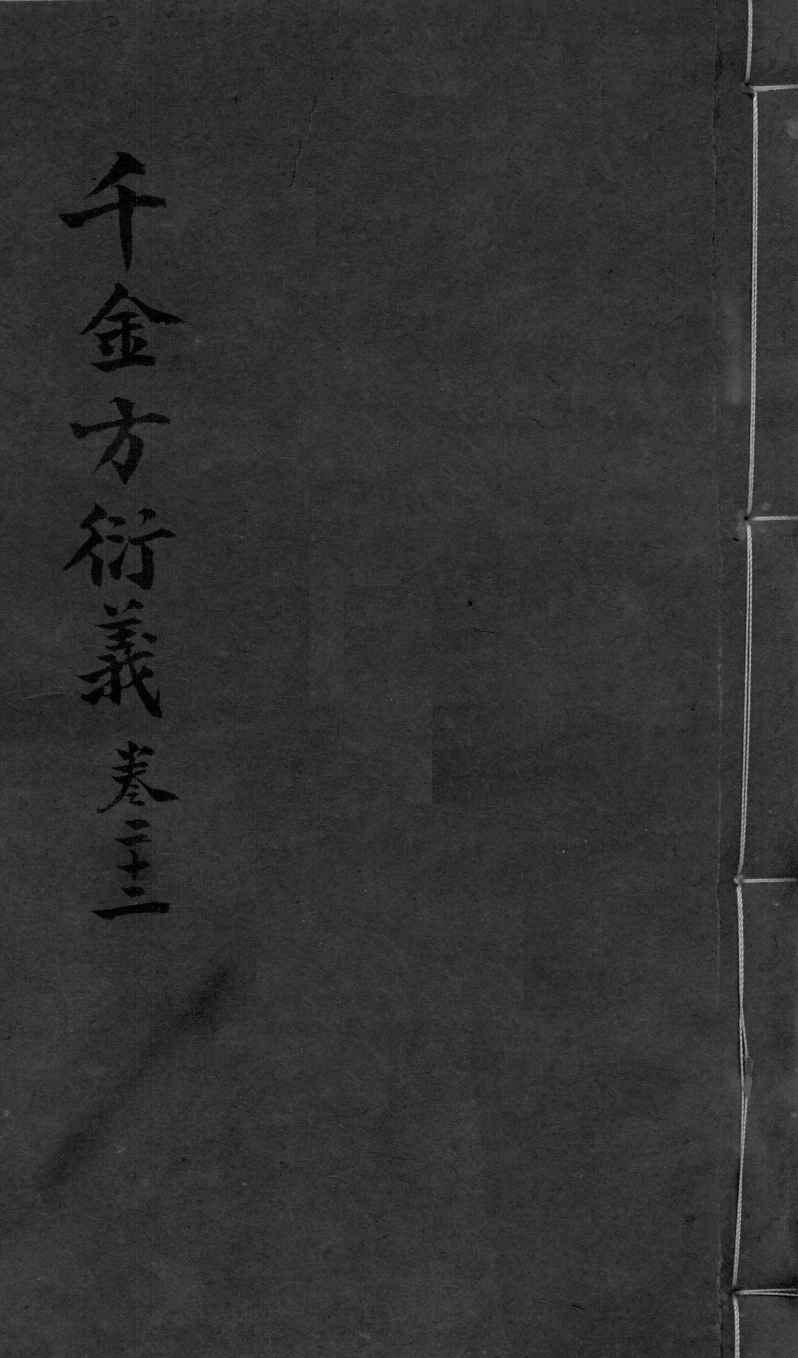 千金方衍義 卷二十二